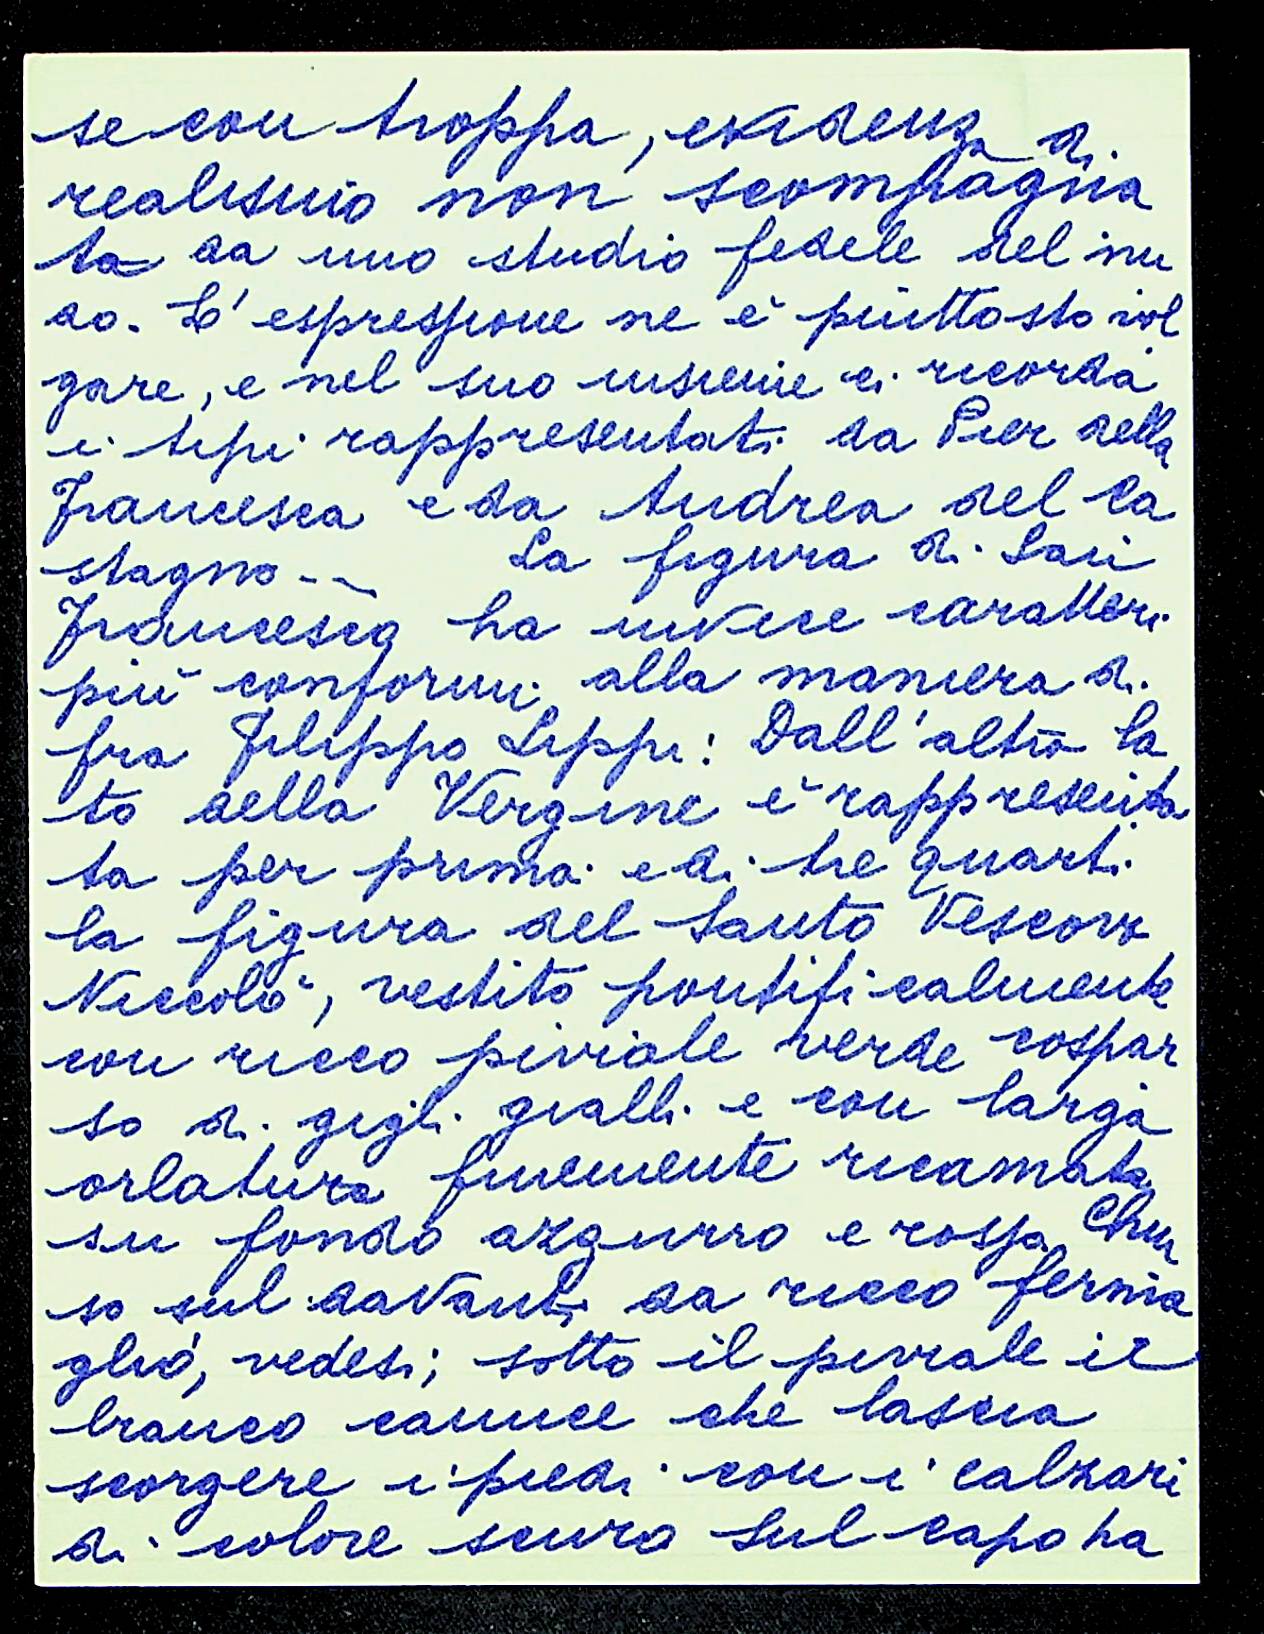 se con troppa, evidenza di
realismo non scompagna
ta da uno studio fedele del nu
do. L'espressione ne è piuttosto vol
gare, e nel suo insieme ci ricorda
i tipi rappresentati da Pier della
Francesca e da Andrea del Ca
stagno-- La figura di San
Francesco ha invece caratteri
più conformi alla maniera di
fra Filippo Lippi: Dall'altro la
to della Vergine è rappresenta
ta per prima e di tre quarti
la figura del Santo Vescovo
Niccolò, vestito pontificalmente
con ricco piviale verde cospar
so di gigli gialli e con larga
orlatura finemente ricamata
su fondo azzurro e rosso. Chiu
so sul davanti da ricco ferma
glio, vedesi; sotto il piviale il
bianco camice che lascia
scorgere i piedi con i calzari
di colore scuro Sul capo ha